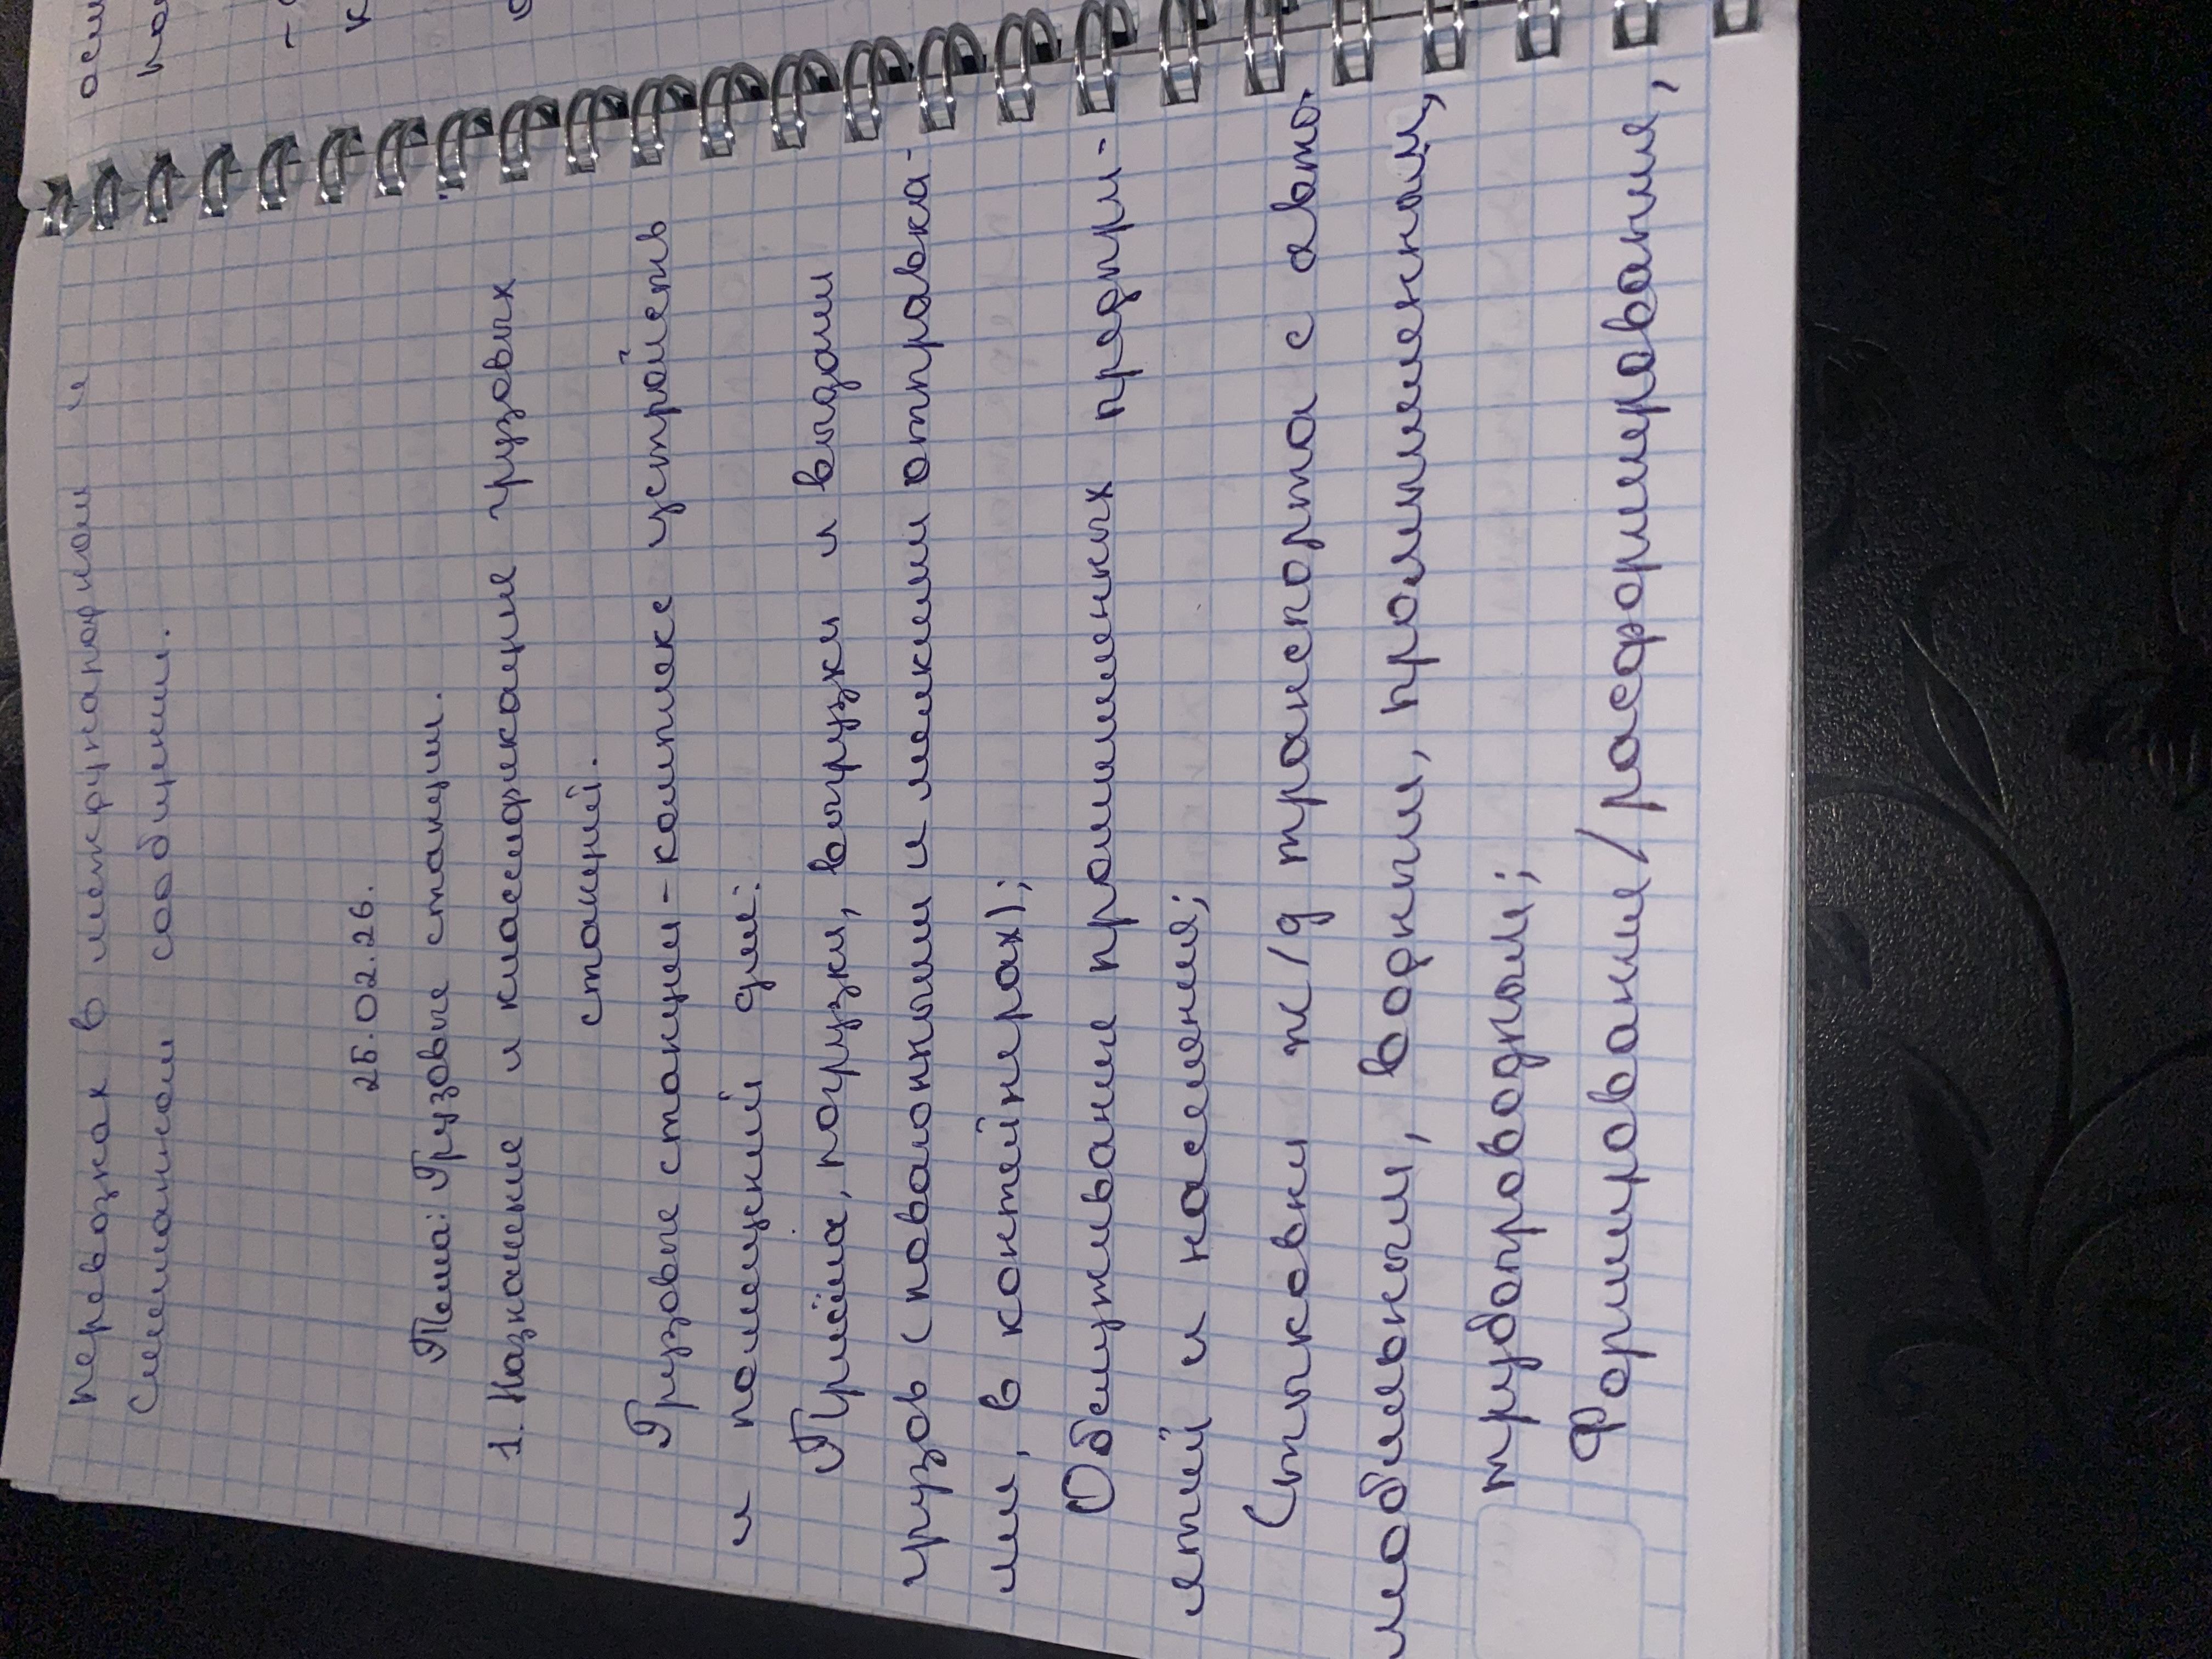 перевозках в международном и
смешанном сообщении.
25.02.26.
Тема: Грузовые станции.
1. Назначение и классификация грузовых
станций.
Грузовые станции - комплекс устройств
и помещений для:
Приёма, погрузки, выгрузки и выдачи
грузов (повагонными и мелкими отправка-
ми, в контейнерах);
Обслуживание промышленных предпри-
ятий и населения;
Стыковки ж/д транспорта с авто-
мобильным, водным, промышленным,
трубопроводным;
Формирования/расформирования,